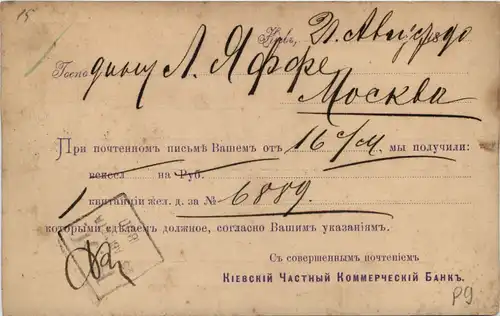 15
Кiевъ, 21. Августа
Господину Л. Яффе
Москва
При почтенномъ письмѣ Вашемъ отъ 16 с/м. мы получили:
вексел на Руб.
1 квитанціи жел. д. за № 6889.
которыми сдѣлаемъ должное, согласно Вашимъ указаніямъ.
Съ совершеннымъ почтеніемъ
Кіевскій Частный Коммерческій Банкъ.
P9